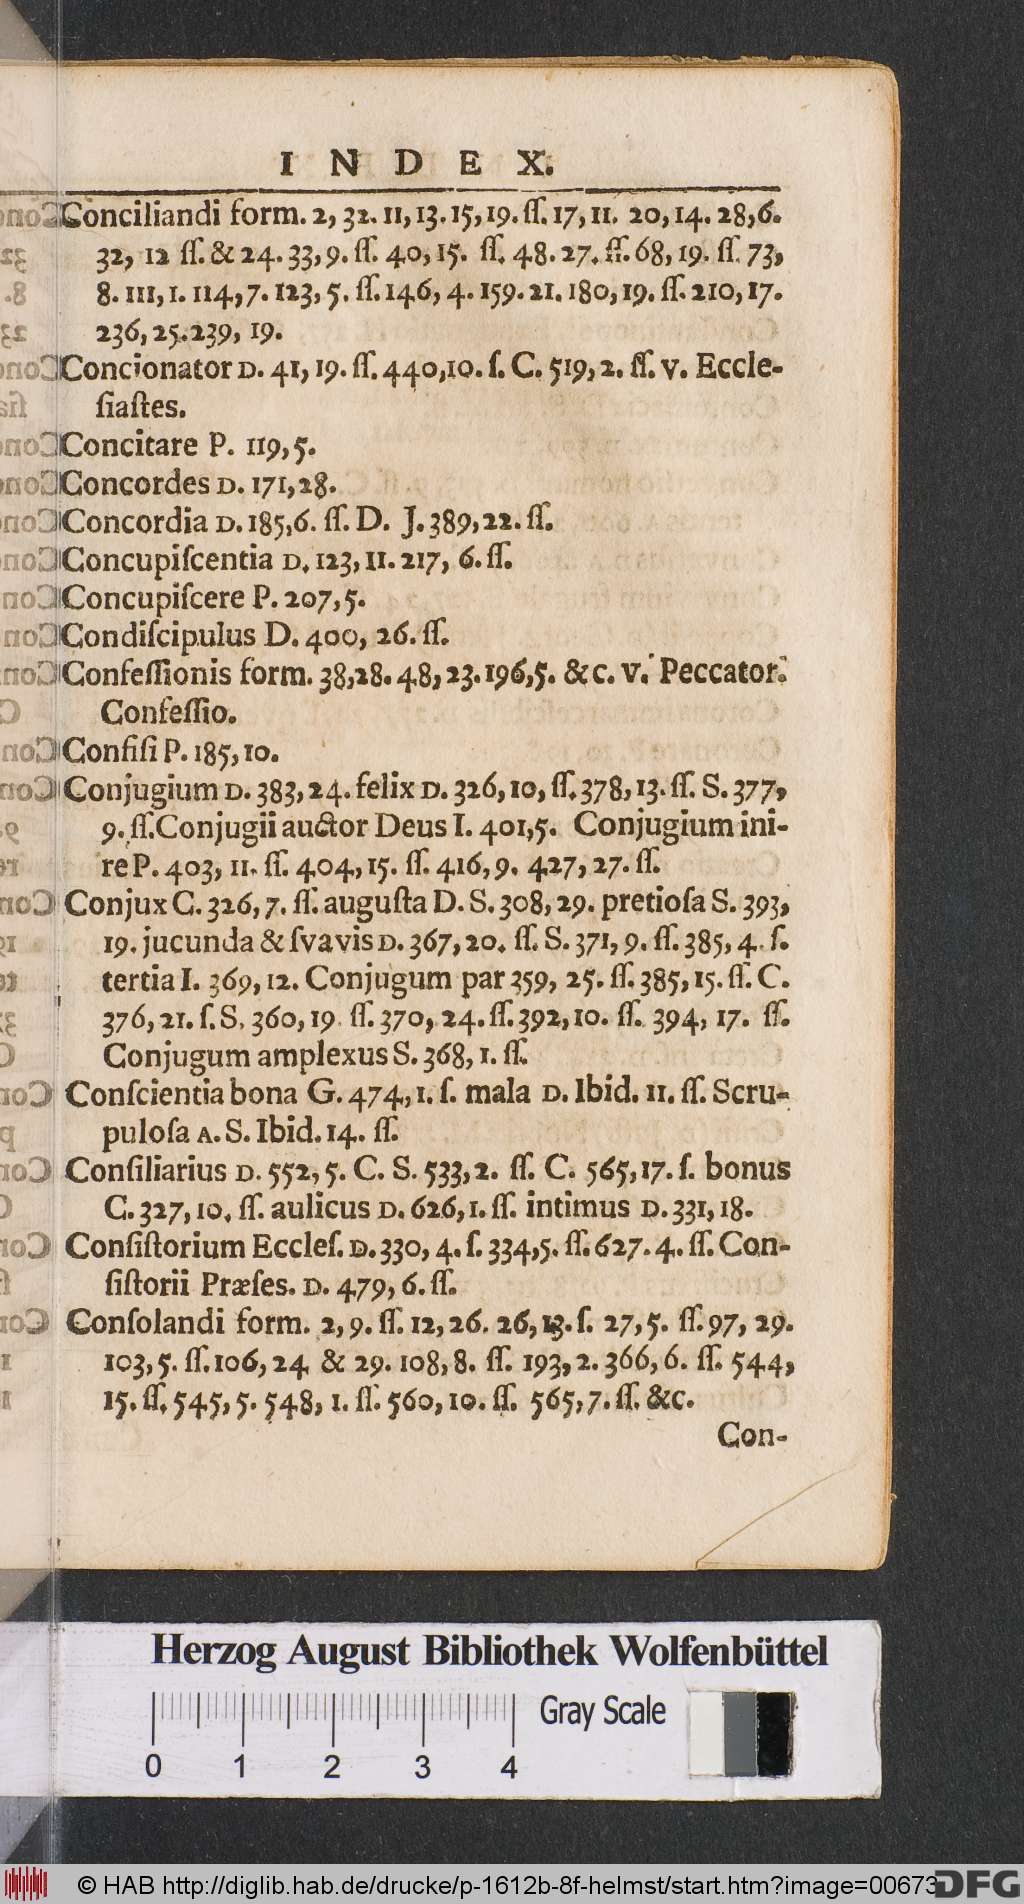 INDEX.
Conciliandi form. 2, 32. 11, 13. 15, 19. ſſ. 17, 11. 20, 14. 28, 6.
32, 12 ſſ. & 24. 33, 9. ſſ. 40, 15. ſſ. 48. 27. ſſ. 68, 19. ſſ. 73,
8. 111, 1. 114, 7. 123, 5. ſſ. 146, 4. 159. 21. 180, 19. ſſ. 210, 17.
236, 25. 239, 19.
Concionator D. 41, 19. ſſ. 440, 10. ſ. C. 519, 2. ſſ. v. Eccle-
ſiaſtes.
Concitare P. 119, 5.
Concordes D. 171, 28.
Concordia D. 185, 6. ſſ. D. J. 389, 22. ſſ.
Concupiſcentia D. 123, 11. 217, 6. ſſ.
Concupiſcere P. 207, 5.
Condiſcipulus D. 400, 26. ſſ.
Confeſſionis form. 38, 28. 48, 23. 196, 5. &c. v. Peccator.
Confeſſio.
Confiſi P. 185, 10.
Conjugium D. 383, 24. felix D. 326, 10, ſſ. 378, 13. ſſ. S. 377,
9. ſſ. Conjugii auctor Deus I. 401, 5. Conjugium ini-
re P. 403, 11. ſſ. 404, 15. ſſ. 416, 9. 427, 27. ſſ.
Conjux C. 326, 7. ſſ. auguſta D. S. 308, 29. pretioſa S. 393,
19. jucunda & ſvavis D. 367, 20. ſſ. S. 371, 9. ſſ. 385, 4. ſ.
tertia I. 369, 12. Conjugum par 359, 25. ſſ. 385, 15. ſſ. C.
376, 21. ſ. S. 360, 19. ſſ. 370, 24. ſſ. 392, 10. ſſ. 394, 17. ſſ.
Conjugum amplexus S. 368, 1. ſſ.
Conſcientia bona G. 474, 1. ſ. mala D. Ibid. 11. ſſ. Scru-
puloſa A. S. Ibid. 14. ſſ.
Conſiliarius D. 552, 5. C. S. 533, 2. ſſ. C. 565, 17. ſ. bonus
C. 327, 10. ſſ. aulicus D. 626, 1. ſſ. intimus D. 331, 18.
Conſiſtorium Eccleſ. D. 330, 4. ſ. 334, 5. ſſ. 627. 4. ſſ. Con-
ſiſtorii Præſes. D. 479, 6. ſſ.
Conſolandi form. 2, 9. ſſ. 12, 26. 26, 13. ſ. 27, 5. ſſ. 97, 29.
103, 5. ſſ. 106, 24 & 29. 108, 8. ſſ. 193, 2. 366, 6. ſſ. 544,
15. ſſ. 545, 5. 548, 1. ſſ. 560, 10. ſſ. 565, 7. ſſ. &c.
Con-
Herzog August Bibliothek Wolfenbüttel
Gray Scale
0 1 2 3 4
© HAB http://diglib.hab.de/drucke/p-1612b-8f-helmst/start.htm?image=00673
DFG